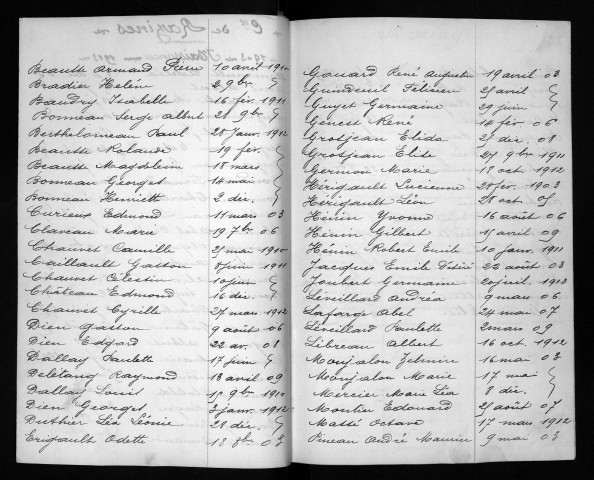 Beautte Armand Pierre 10 avril 1910
Bradier Helein 2 9bre
Baudry Isabelle 16 fév. 1911
Bonneau Serge Albert 28 9bre
Bertheloneau Paul 28 janv. 1912
Beautte Rolande 19 fev.
Beautte Magdelein 18 mars
Bonneau Georges 14 mai
Bonneau Henriette 2 déc.
Curieux Edmond 11 mars 03
Claveau Marie 19 7bre 06
Chauvet Camille 21 mai 1910
Caillault Gaston 8 juin 1911
Chauvet Célestin 10 juin
Château Edmond 16 déc.
Chauvet Cyrille 27 mars 1912
Dien Gaston 9 août 06
Dien Edgard 22 av. 08
Dallay Paulette 17 juin
Delétang Raymond 13 avril 09
Dallay Louis 15 9bre 1910
Dien Georges 3 janv. 1912
Duthier Léa Léonie 28 déc.
Erigault Odette 18 8bre 03
Gouard René Augustin 19 avril 03
Gundeuil Félicien 21 avril
Guyet Germaine 29 juin
Gencet René 14 fév. 06
Grosjean Elida 21 déc. 08
Grosjean Elide 27 9bre 1911
Germon Marie 18 oct 1912
Hérigault Lucienne 28 fev. 1903
Hérigault Léon 28 oct 05
Hénin Yvonne 16 août 06
Hénin Gilbert 11 avril 09
Hénin Robert Emile 10 janv. 1911
Jacques Emile Désiré 22 août 03
Joubert Germaine 20 juil. 1913
Léveillard Andréa 9 mars 06
Lafarge Abel 24 mai 07
Léveillard Paulette 2 mars 09
Libreau Albert 16 oct. 1912
Monjalon Zelmire 16 mai 03
Monjalon Marie 17 mai
Mercier Marie Léa 8 déc.
Montier Edouard 21 août 07
Massé Octave 17 mars 1912
Pineau André Maurice 9 mai 03